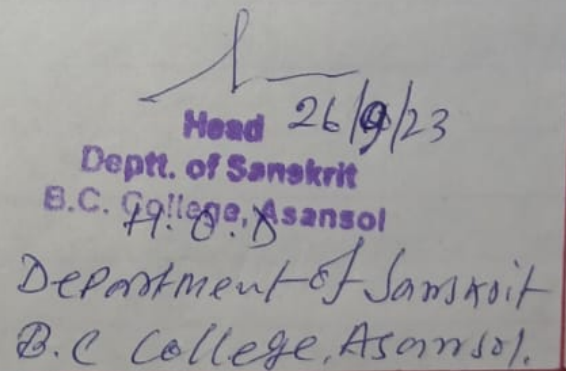 26/9/23
Head
Deptt. of Sanskrit
B.C. College, Asansol
H.O.D
Department of Sanskrit
B.C College, Asansol.